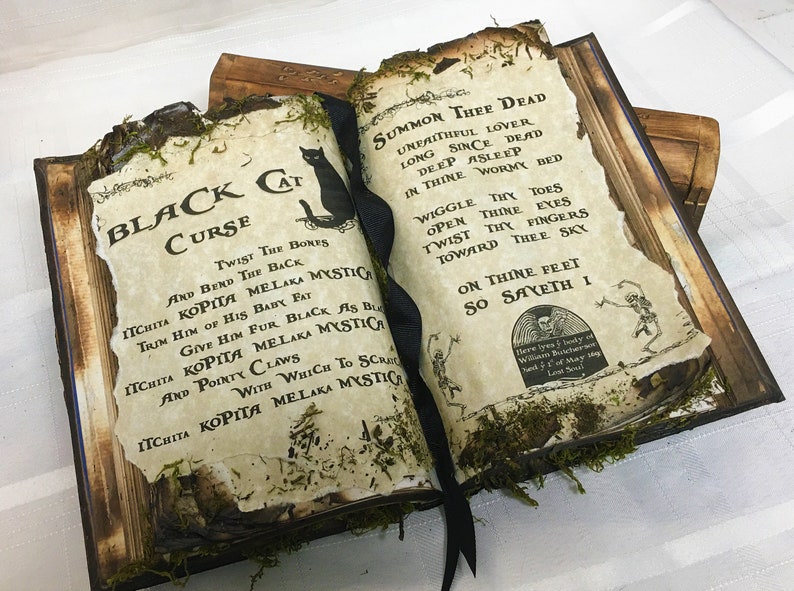 BLACK CAT
CURSE
TWIST THE BONES
AND BEND THE BACK
ITCHITA KOPITA MELAKA MYSTICA
TRIM HIM OF HIS BABY FAT
GIVE HIM FUR BLACK AS BLA
ITCHITA KOPITA MELAKA MYSTICA
AND POINTY CLAWS
WITH WHICH TO SCRATC
ITCHITA KOPITA MELAKA MYSTICA
SUMMON THEE DEAD
UNFAITHFUL LOVER
LONG SINCE DEAD
DEEP ASLEEP
IN THINE WORMY BED
WIGGLE THY TOES
OPEN THINE EYES
TWIST THY FINGERS
TOWARD THEE SKY
ON THINE FEET
SO SAYETH I
Here lyes yᵉ body of
William Butcherson
Died yᵉ 1st of May 169
Lost Soul